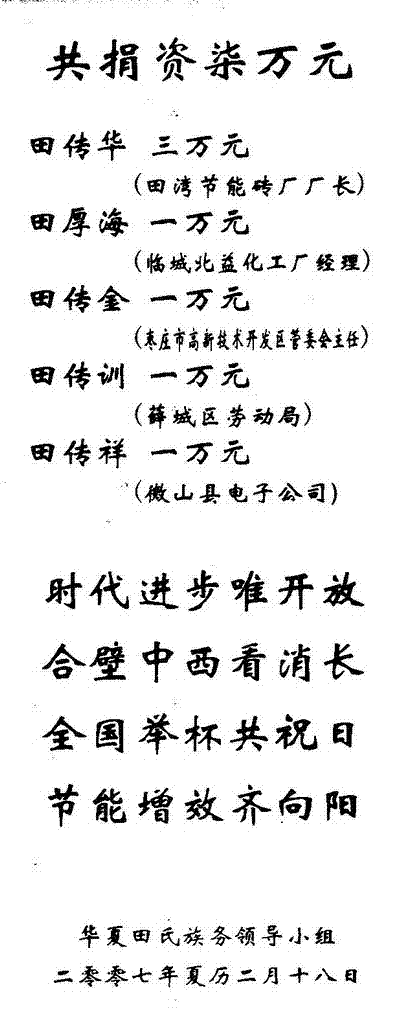 共捐资柒万元
田传华 三万元
(田湾节能砖厂厂长)
田厚海 一万元
(临城北益化工厂经理)
田传金 一万元
(枣庄市高新技术开发区管委会主任)
田传训 一万元
(薛城区劳动局)
田传祥 一万元
(微山县电子公司)
时代进步唯开放
合壁中西看消长
全国举杯共祝日
节能增效齐向阳
华夏田氏族务领导小组
二零零七年夏历二月十八日